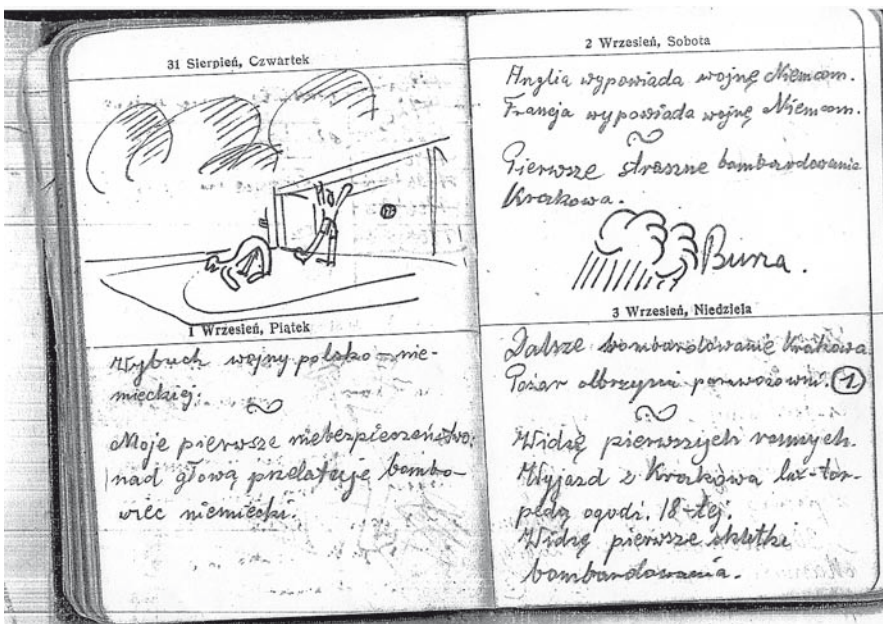 31 Sierpień, Czwartek
1 Wrzesień, Piątek
Wybuch wojny polsko-nie-
mieckiej.
Moje pierwsze niebezpieczeństwo:
nad głową przelatuje bombo-
wiec niemiecki.
2 Wrzesień, Sobota
Anglia wypowiada wojnę Niemcom.
Francja wypowiada wojnę Niemcom.
Pierwsze straszne bombardowanie
Krakowa.
Burza.
3 Wrzesień, Niedziela
Dalsze bombardowanie Krakowa
Pożar olbrzymi parowozowni. 1
Widzę pierwszych rannych.
Wyjazd z Krakowa lux-tor-
pedą o godz. 18-tej.
Widzę pierwsze skutki
bombardowania.